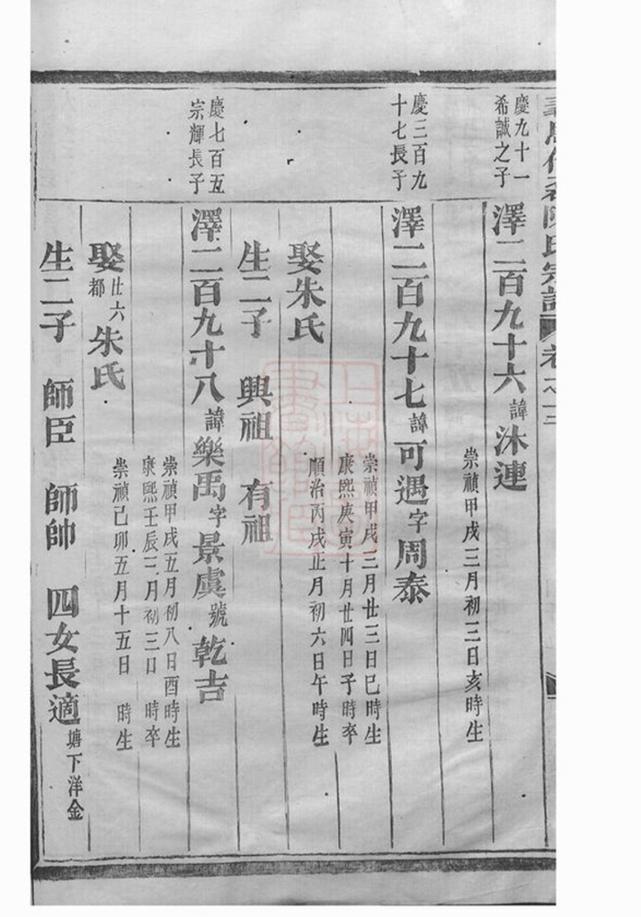 陳氏宗譜 卷之三
慶九十一
希誠之子
澤二百九十六諱沐連
崇禎甲戌三月初三日亥時生
慶三百九
十七長子
澤二百九十七諱可遇字周泰
崇禎甲戌三月廿三日巳時生
康熙庚寅十月廿四日子時卒
娶朱氏
順治丙戌正月初六日午時生
生二子 興祖 有祖
慶七百五
宗輝長子
澤二百九十八諱樂禹字景虞號乾吉
崇禎甲戌五月初八日酉時生
康熙壬辰三月初三日 時卒
娶廿六都朱氏
崇禎己卯五月十五日 時生
生二子 師臣 師帥 四女長適塘下洋金